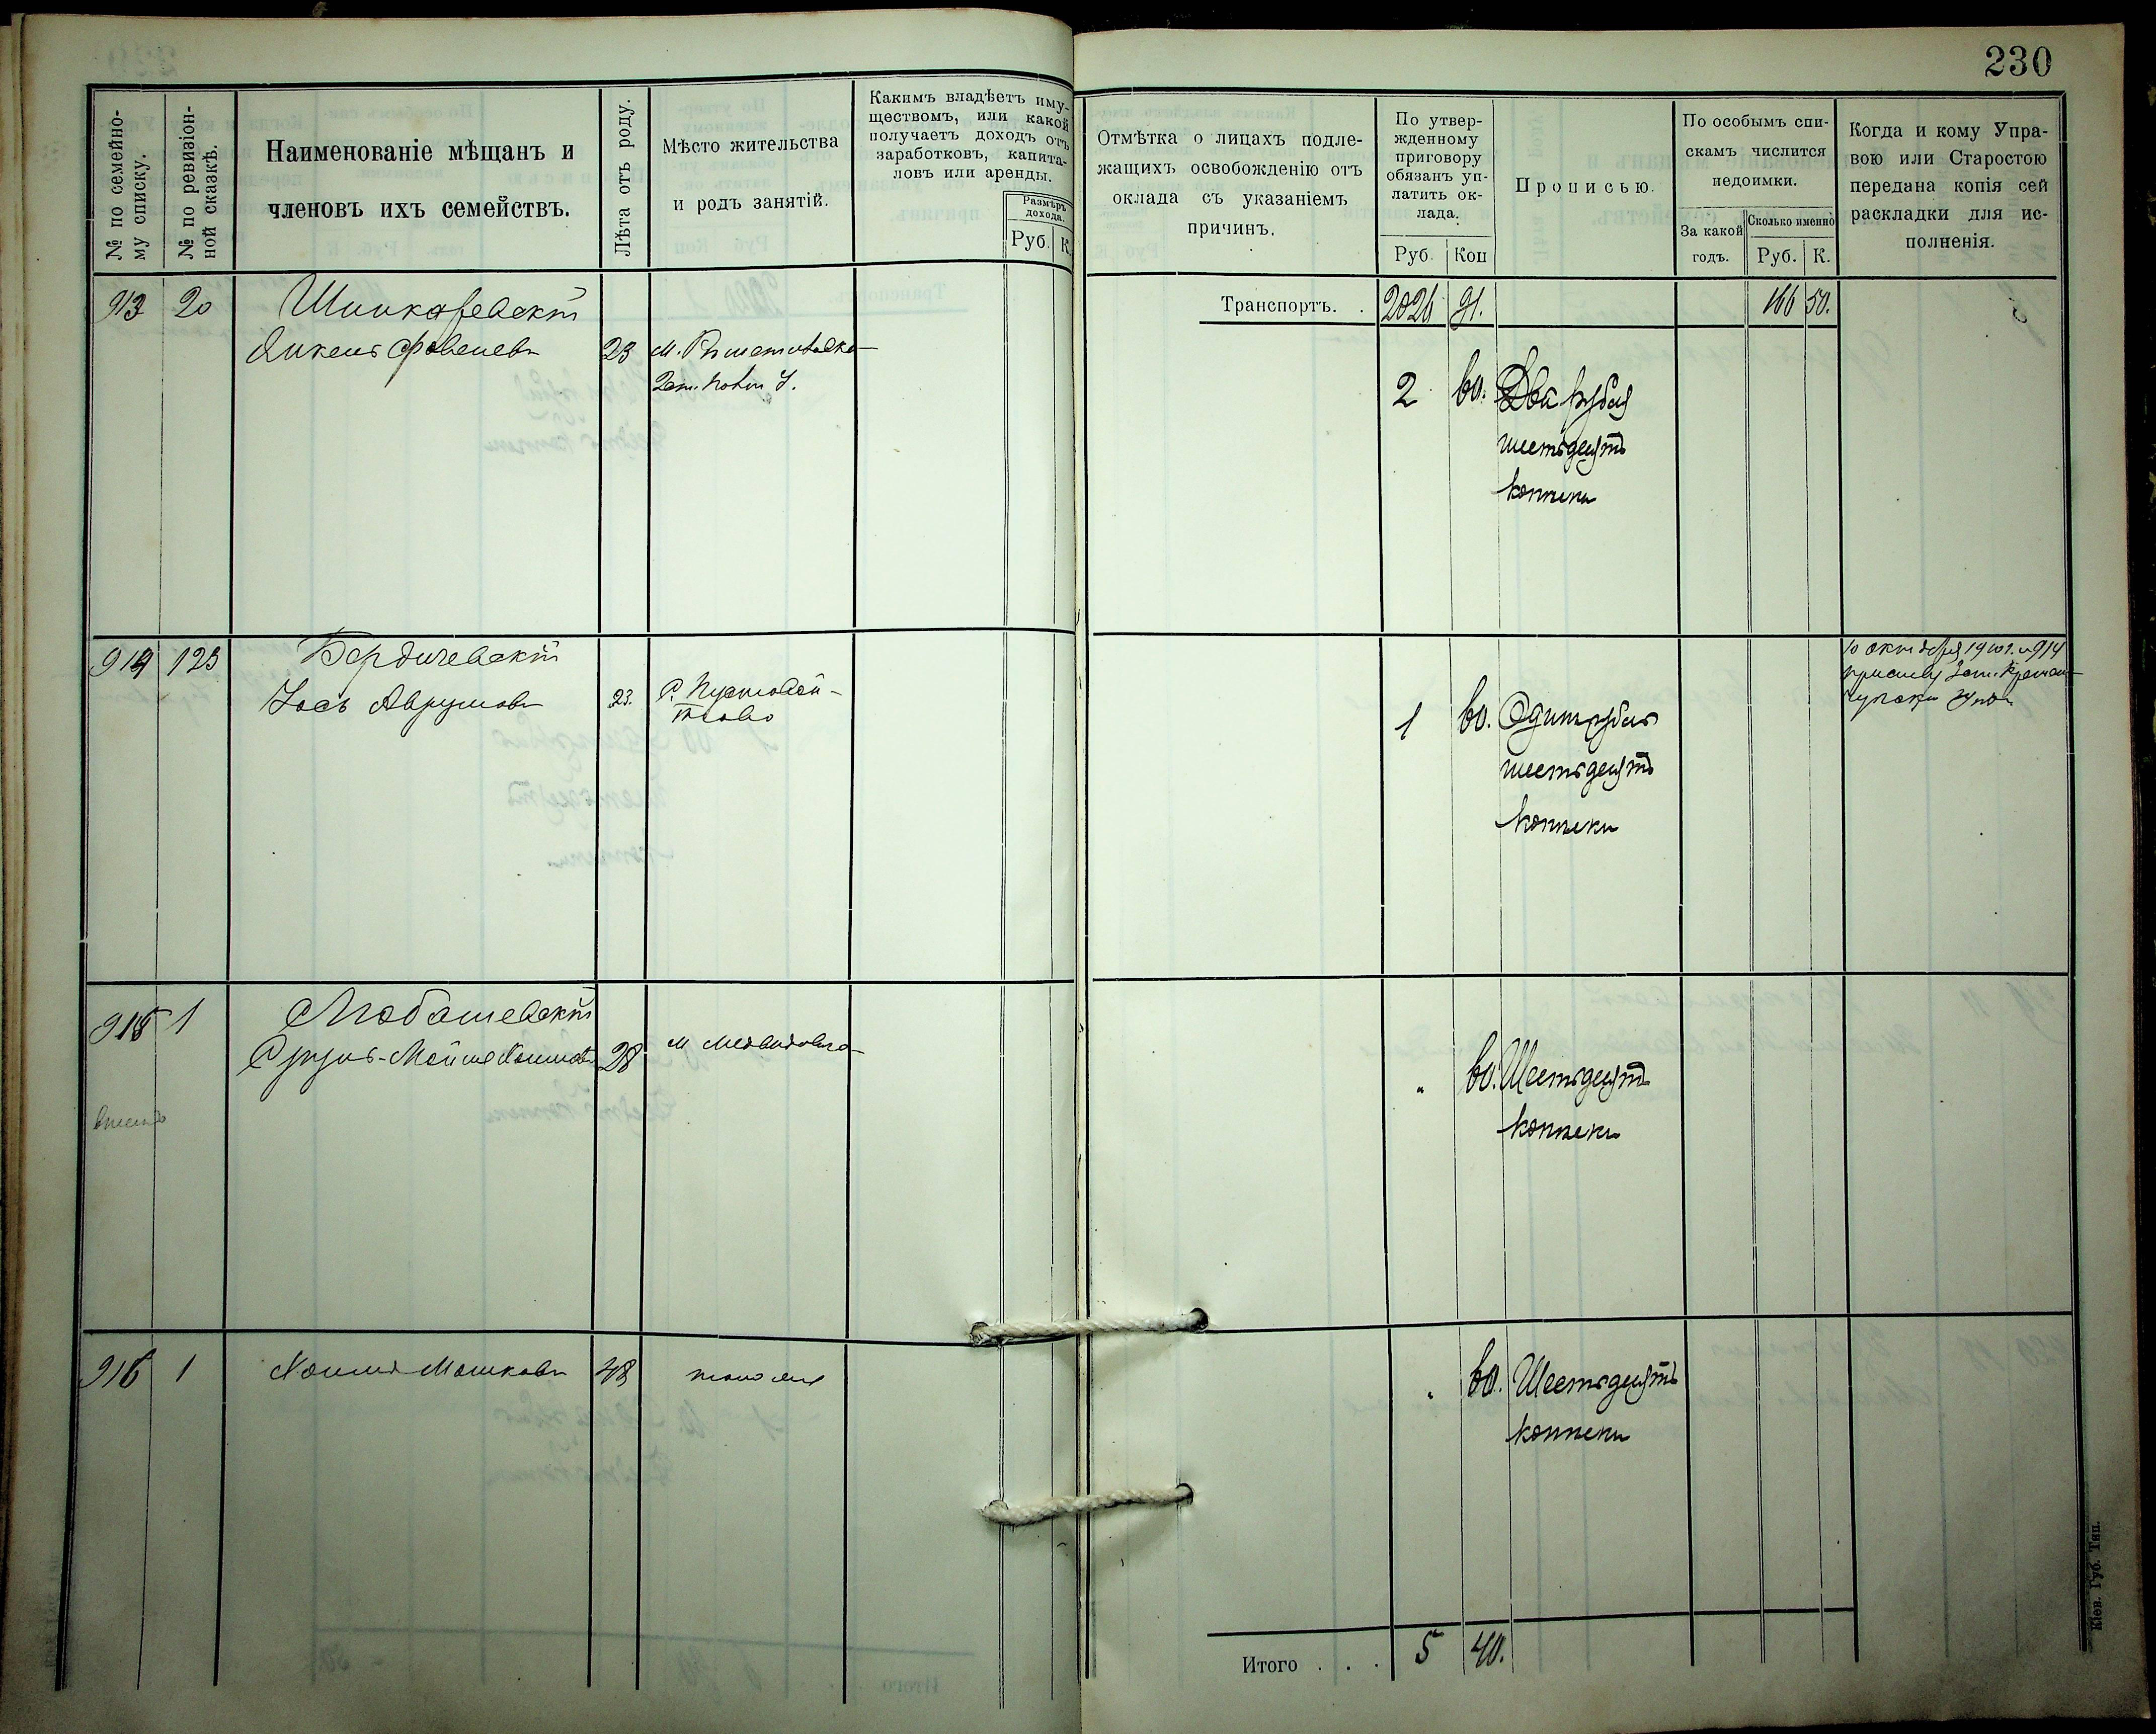 230
№ по семейно-
му списку.
№ по ревизіон-
ной сказкѣ.
Наименованіе мѣщанъ и
членовъ ихъ семействъ.
Лѣта отъ роду.
Мѣсто жительства
и родъ занятій.
Какимъ владѣетъ иму-
ществомъ, или какой
получаетъ доходъ отъ
заработковъ, капита-
ловъ или аренды.
Размѣръ
дохода.
Руб. К.
Отмѣтка о лицахъ подле-
жащихъ освобожденію отъ
оклада съ указаніемъ
причинъ.
По утвер-
жденному
приговору
обязанъ уп-
латить ок-
лада.
Руб. Коп
Прописью.
По особымъ спи-
скамъ числится
недоимки.
За какой
годъ.
Сколько именно
Руб. К.
Когда и кому Упра-
вою или Старостою
передана копія сей
раскладки для ис-
полненія.
Транспортъ. . 2026 91. 166 50.
913 20 Шинкаревскій
23 м.
2 60. Два рубля
шестьдесятъ
копѣекъ
914 123 Бердичевскій
Іось Аврумовъ 23. с.
1 60. Одинъ рубль
шестьдесятъ
копѣекъ
10 октября № 914
915 1 Любашевскій
28 м Медвидовка
" 60. Шестьдесятъ
копѣекъ
916 1 Хаимъ Мошковъ 48 тоже
" 60. Шестьдесятъ
копѣекъ
Итого . . . 5 40.
Кіев. Губ. Тип.